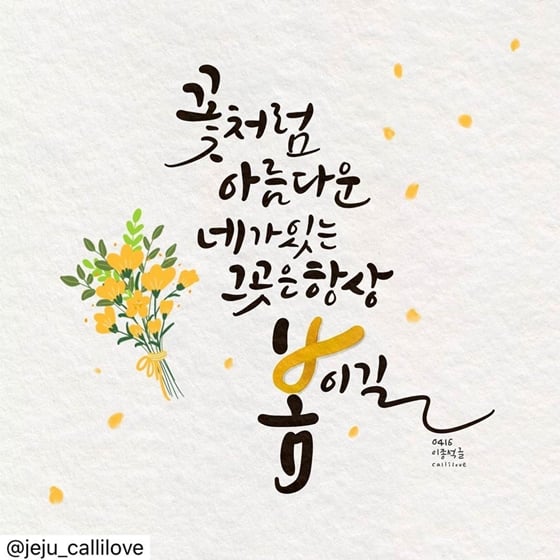 꽃처럼
아름다운
네가있는
그곳은항상
봄이길
0416
이종석글
callilove
@jeju_callilove